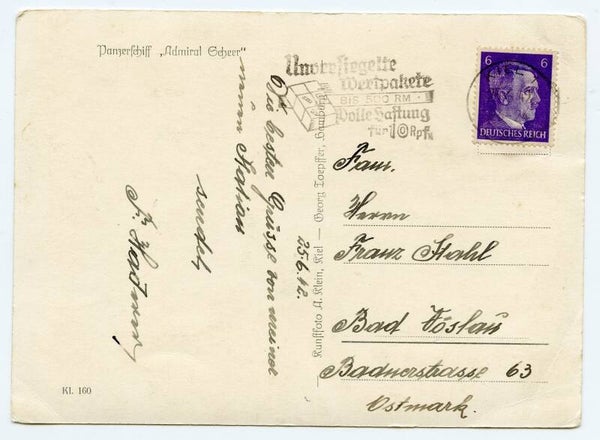 Panzerschiff „Admiral Scheer"
Unversiegelte
Wertpakete
BIS 500 RM
Volle Haftung
für 10 Rpf.
6 6
DEUTSCHES REICH
25.6.42.
Die besten Grüsse von meiner
neuen Station
sendet
Fam.
Herrn
Franz Stahl
Bad Vöslau
Badnerstrasse 63
Ostmark.
Kunstfoto A. Klein, Kiel — Georg Toepffer, Hamburg
Kl. 160